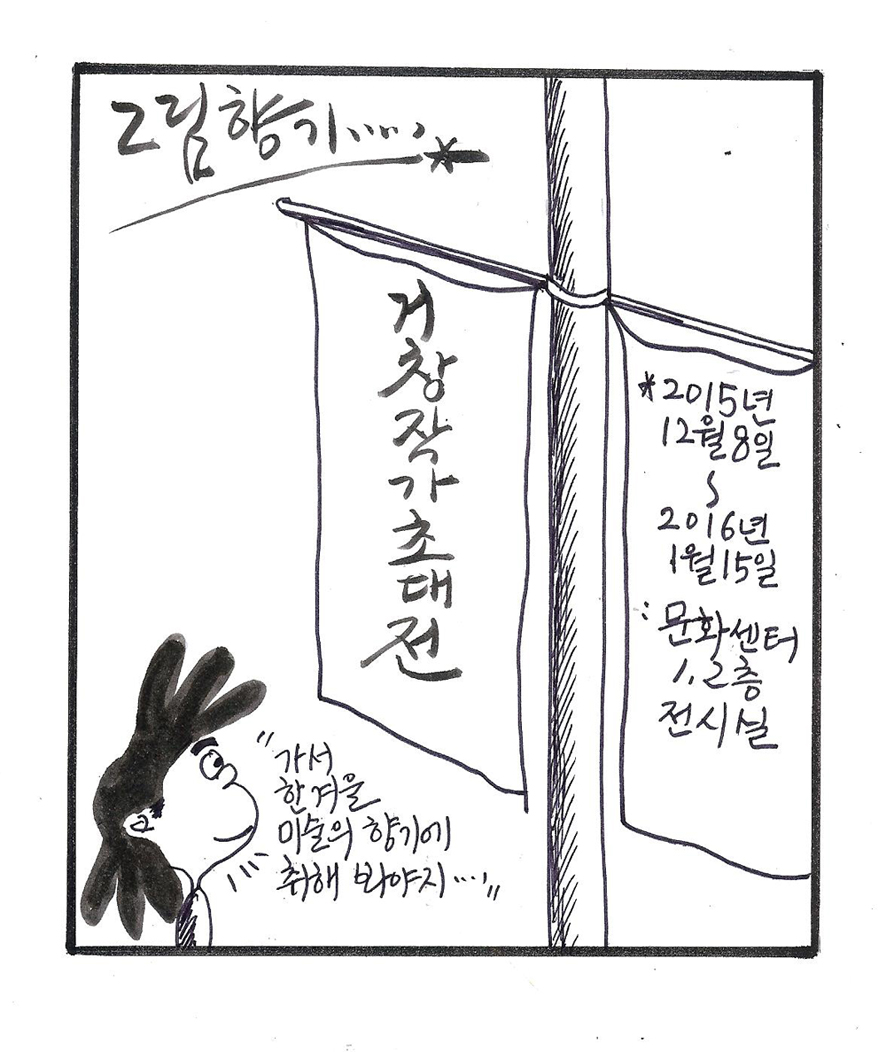 그림향기.....*
거창작가초대전
*2015년
12월8일
~
2016년
1월15일
: 문화센터
1,2층
전시실
"가서
한겨울
미술의 향기에
취해 봐야지...."